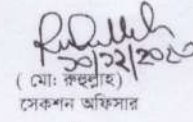 ২০/১২/২০২০
( মোঃ রুহুল্লাহ)
সেকশন অফিসার